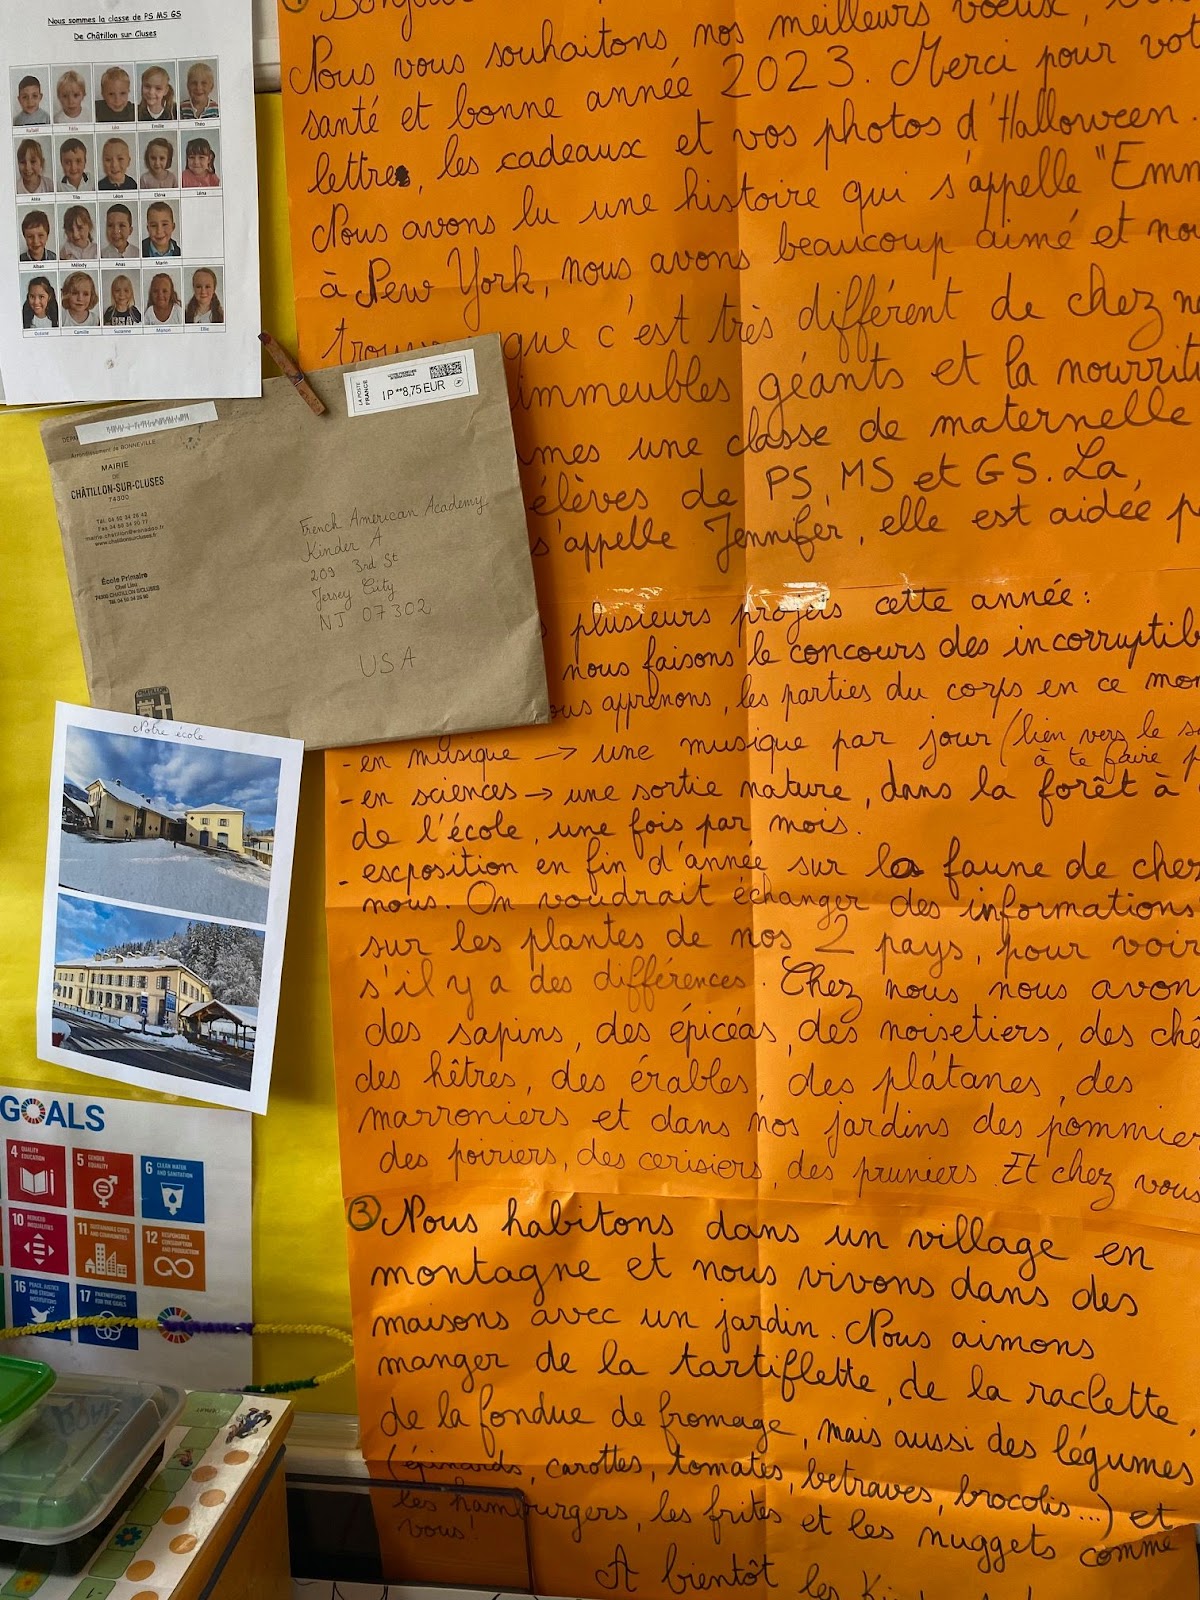 Nous sommes la classe de PS MS GS
De Châtillon sur Cluses
Emilie
Théo
Tito
Léon
Léna
Alban
Mélody
Anas
Marin
Camille
Suzanne
Manon
Ellie
LA POSTE
FRANCE
IP**8,75 EUR
Arrondissement de BONNEVILLE
MAIRIE
DE
CHÂTILLON-SUR-CLUSES
74300
École Primaire
Chef Lieu
French American Academy
Kinder A
209 3rd St
Jersey City
NJ 07302
USA
CHATILLON
Notre école
GOALS
4 QUALITY EDUCATION
5 GENDER EQUALITY
6 CLEAN WATER AND SANITATION
10 REDUCED INEQUALITIES
11 SUSTAINABLE CITIES AND COMMUNITIES
12 RESPONSIBLE CONSUMPTION AND PRODUCTION
16 PEACE, JUSTICE AND STRONG INSTITUTIONS
17 PARTNERSHIPS FOR THE GOALS
Nous vous souhaitons nos meilleurs vœux,
santé et bonne année 2023. Merci pour vot
lettres, les cadeaux et vos photos d'Halloween.
Nous avons lu une histoire qui s'appelle "Emm
à New York, nous avons beaucoup aimé et nou
que c'est très différent de chez n
immeubles géants et la nourrit
mes une classe de maternelle
élèves de PS, MS et GS. La
s'appelle Jennifer, elle est aidée p
plusieurs projets cette année:
nous faisons le concours des incorruptib
ous apprenons, les parties du corps en ce mom
- en musique → une musique par jour (lien vers le s
à te faire p
- en sciences → une sortie nature, dans la forêt à
de l'école, une fois par mois.
- exposition en fin d'année sur la faune de chez
nous. On voudrait échanger des informations
sur les plantes de nos 2 pays, pour voir
s'il y a des différences. Chez nous nous avon
des sapins, des épicéas, des noisetiers, des chê
des hêtres, des érables, des platanes, des
marroniers et dans nos jardins des pommier
des poiriers, des cerisiers, des pruniers. Et chez vous
③ Nous habitons dans un village en
montagne et nous vivons dans des
maisons avec un jardin. Nous aimons
manger de la tartiflette, de la raclette,
de la fondue de fromage, mais aussi des légumes
(épinards, carottes, tomates, betraves, brocolis...) et
les hamburgers, les frites et les nuggets comme
vous!
A bientôt les